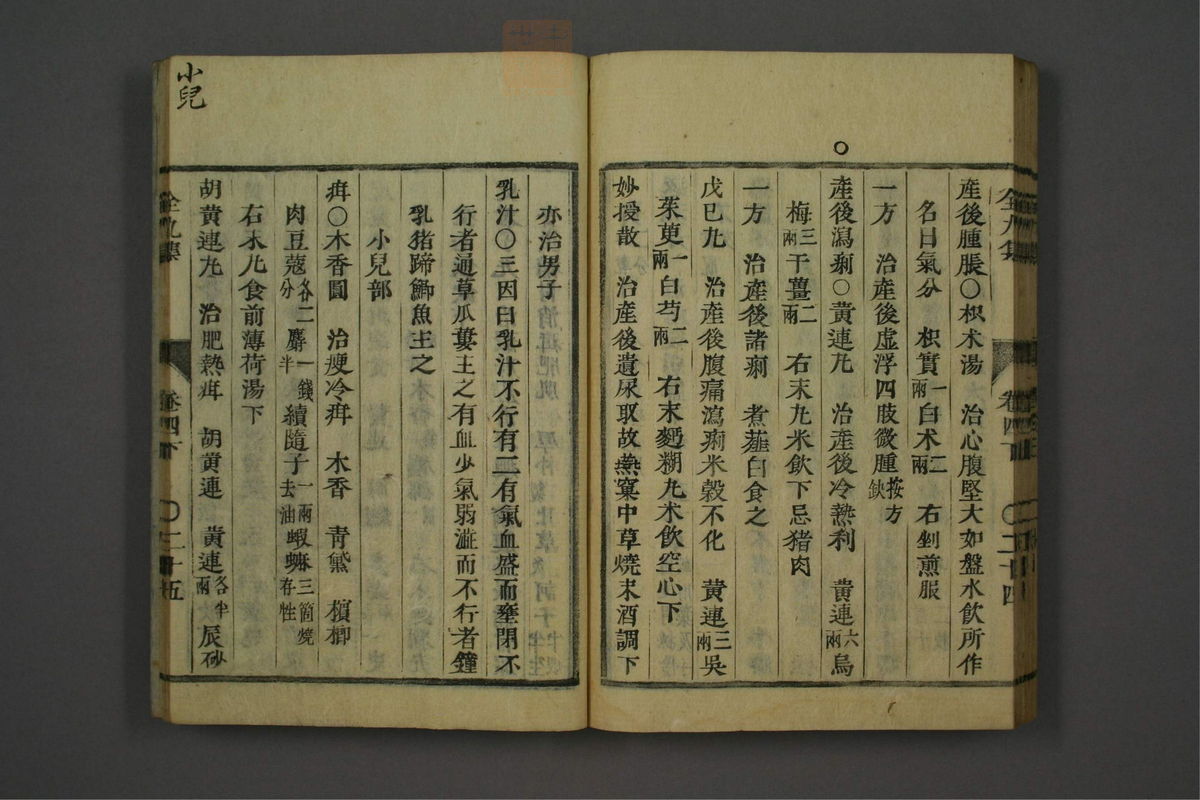 産後腫脹○枳朮湯　治心腹堅大如盤水飲所作
名曰氣分　枳實一兩白朮二兩　右剉煎服
一方　治産後虚浮四肢微腫按方缺
産後瀉痢○黄連丸　治産後冷熱利　黄連六兩烏
梅三兩干薑二兩　右末丸米飲下忌猪肉
一方　治産後諸痢　煮薤白食之
戊巳丸　治産後腹痛瀉痢米穀不化　黄連三兩吳
茱萸一兩白芍二兩　右末麪糊丸米飲空心下
妙授散　治産後遺尿取故燕窠中草燒末酒調下
全九集　卷四下　○二十四
小兒
亦治男子
乳汁○三因曰乳汁不行有二有氣血盛而壅閉不
行者通草瓜蔞主之有血少氣弱澁而不行者鐘
乳猪蹄鯽魚主之
小兒部
疳○木香圓　治瘦冷疳　木香　青黛　檳榔
肉豆蔻各二分麝一錢半續隨子一兩去油蝦蟆三箇燒存性
右木丸食前薄荷湯下
胡黄連丸　治肥熱疳　胡黄連　黄連各半兩辰砂
全九集　卷四下　○二十五